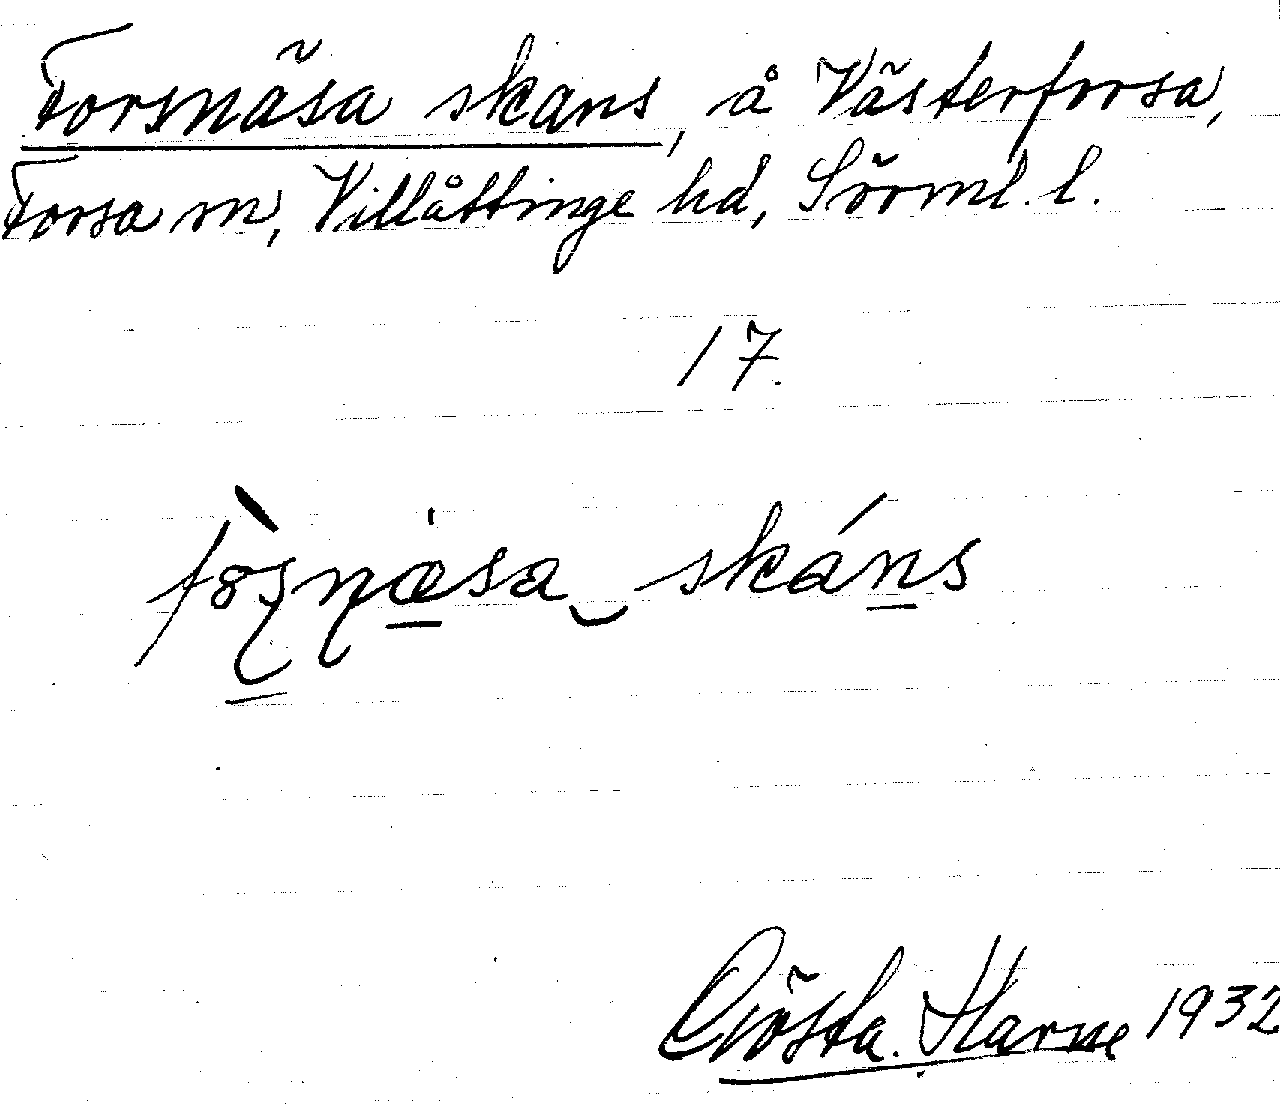 Forsnäsa skans, å Västerforsa,
Forsa sn, Villåttinge hd, Sörml. l.
17.
skáns
Gösta Harne 1932